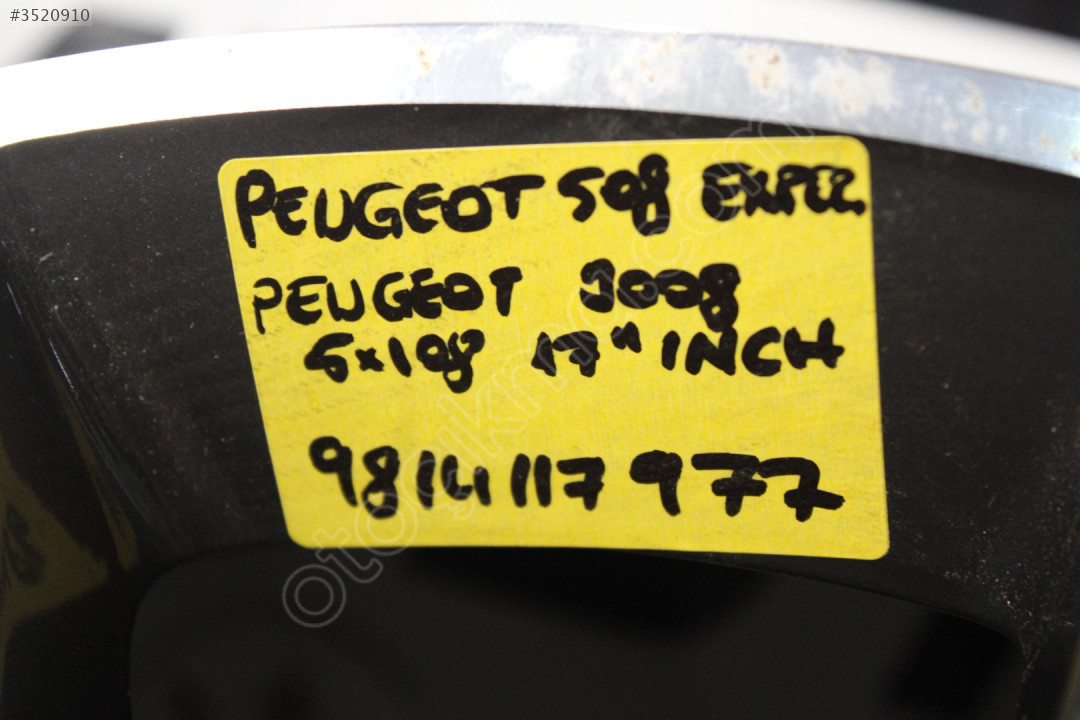 #3520910
PEUGEOT 508 EXPER
PEUGEOT 3008
5x108 17" INCH
9814117977
otocikma.com